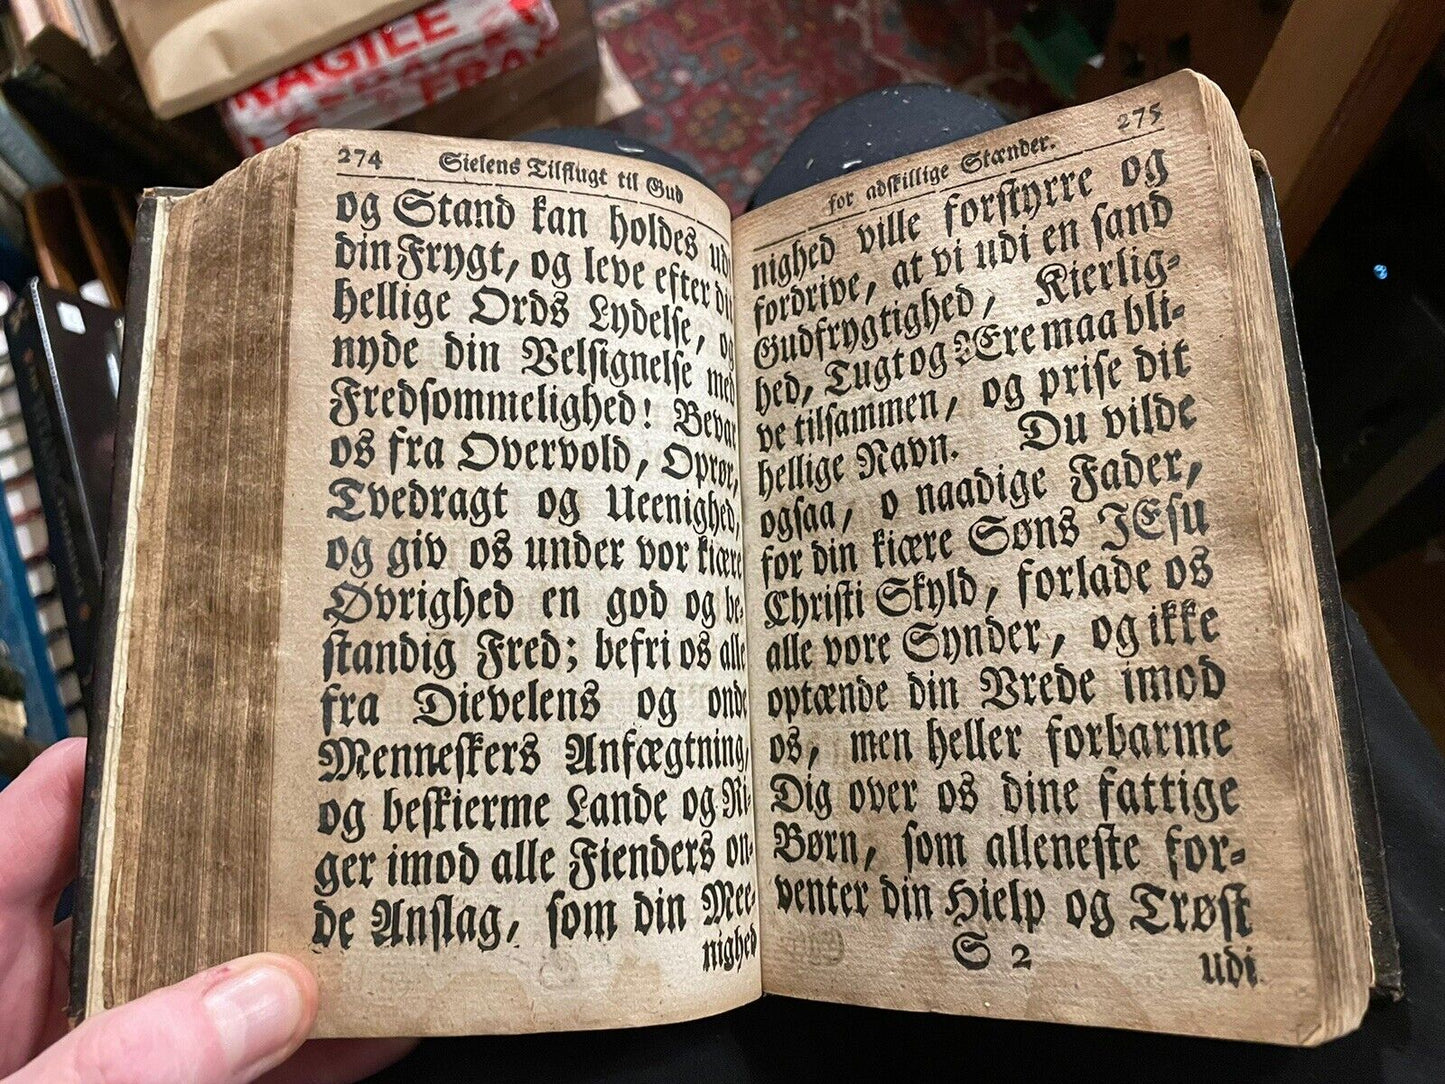 FRAGILE
274 Sielens Tilflugt til Gud
og Stand kan holdes udi
din Frygt, og leve efter dit
hellige Ords Lydelse, og
nyde din Velsignelse med
Fredsommelighed! Bevar
os fra Overvold, Oprør,
Tvedragt og Ueenighed,
og giv os under vor kiære
Øvrighed en god og be-
standig Fred; befri os alle
fra Dievelens og onde
Menneskers Anfægtning,
og beskierme Lande og Ri-
ger imod alle Fienders on-
de Anslag, som din Mee-
nighed
for adskillige Stænder. 275
nighed ville forstyrre og
fordrive, at vi udi en sand
Gudfrygtighed, Kierlig-
hed, Tugt og Ære maa bli-
ve tilsammen, og prise dit
hellige Navn. Du vilde
ogsaa, o naadige Fader,
for din kiære Søns JEsu
Christi Skyld, forlade os
alle vore Synder, og ikke
optænde din Vrede imod
os, men heller forbarme
Dig over os dine fattige
Børn, som alleneste for-
venter din Hielp og Trøst
S 2 udi